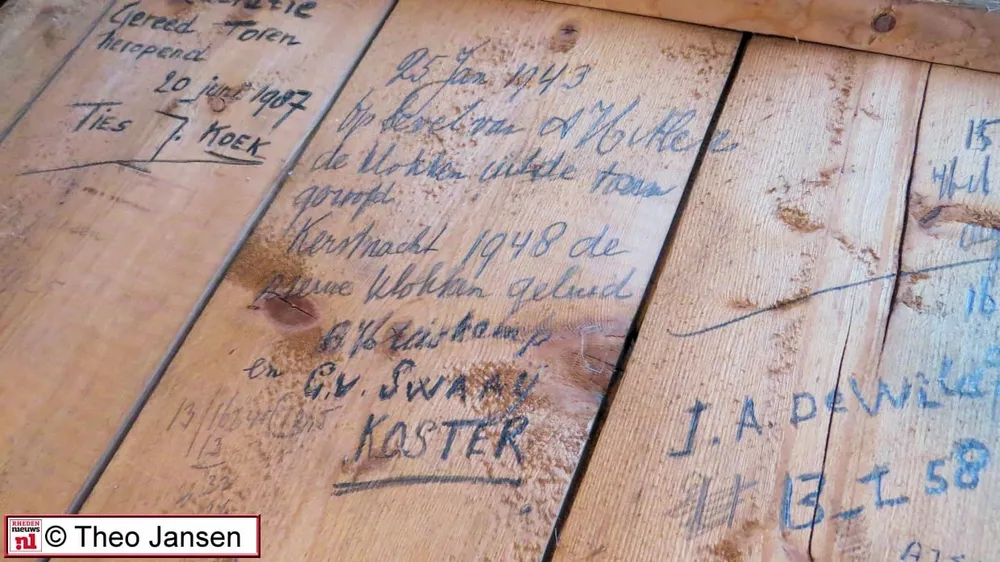 Gereed Toren
heropend
20 juni 1987
TIES J. KOEK
25 Jan 1943
Op bevel van A Hitler
de klokken uit de toren
geroofd
Kerstnacht 1948 de
nieuwe klokken geluid
en G.V. SWAAY
KOSTER
13
15
16
J. A. DeWiLde
13-I 58
RHEDEN
nieuws
.nl
© Theo Jansen